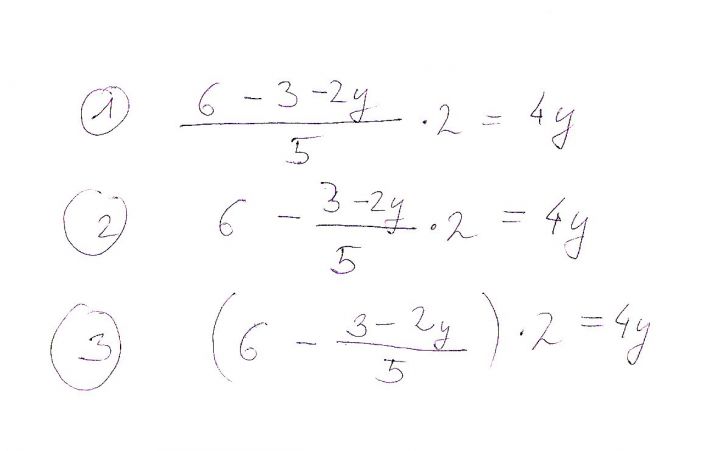 ① \frac{6 - 3 - 2y}{5} · 2 = 4y
② 6 - \frac{3 - 2y}{5} · 2 = 4y
③ (6 - \frac{3 - 2y}{5}) · 2 = 4y